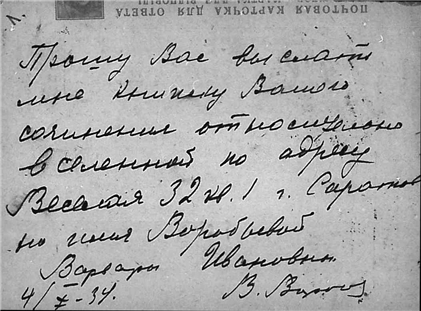 1.
ПОЧТОВАЯ КАРТОЧКА ДЛЯ ОТВЕТА
Прошу Вас выслать
мне книжку Вашего
сочинения относительно
вселенной по адресу
Веселая 32 кв. 1 г. Саратов
на имя Воробьевой
Варвары Ивановны
4/X-34. В.